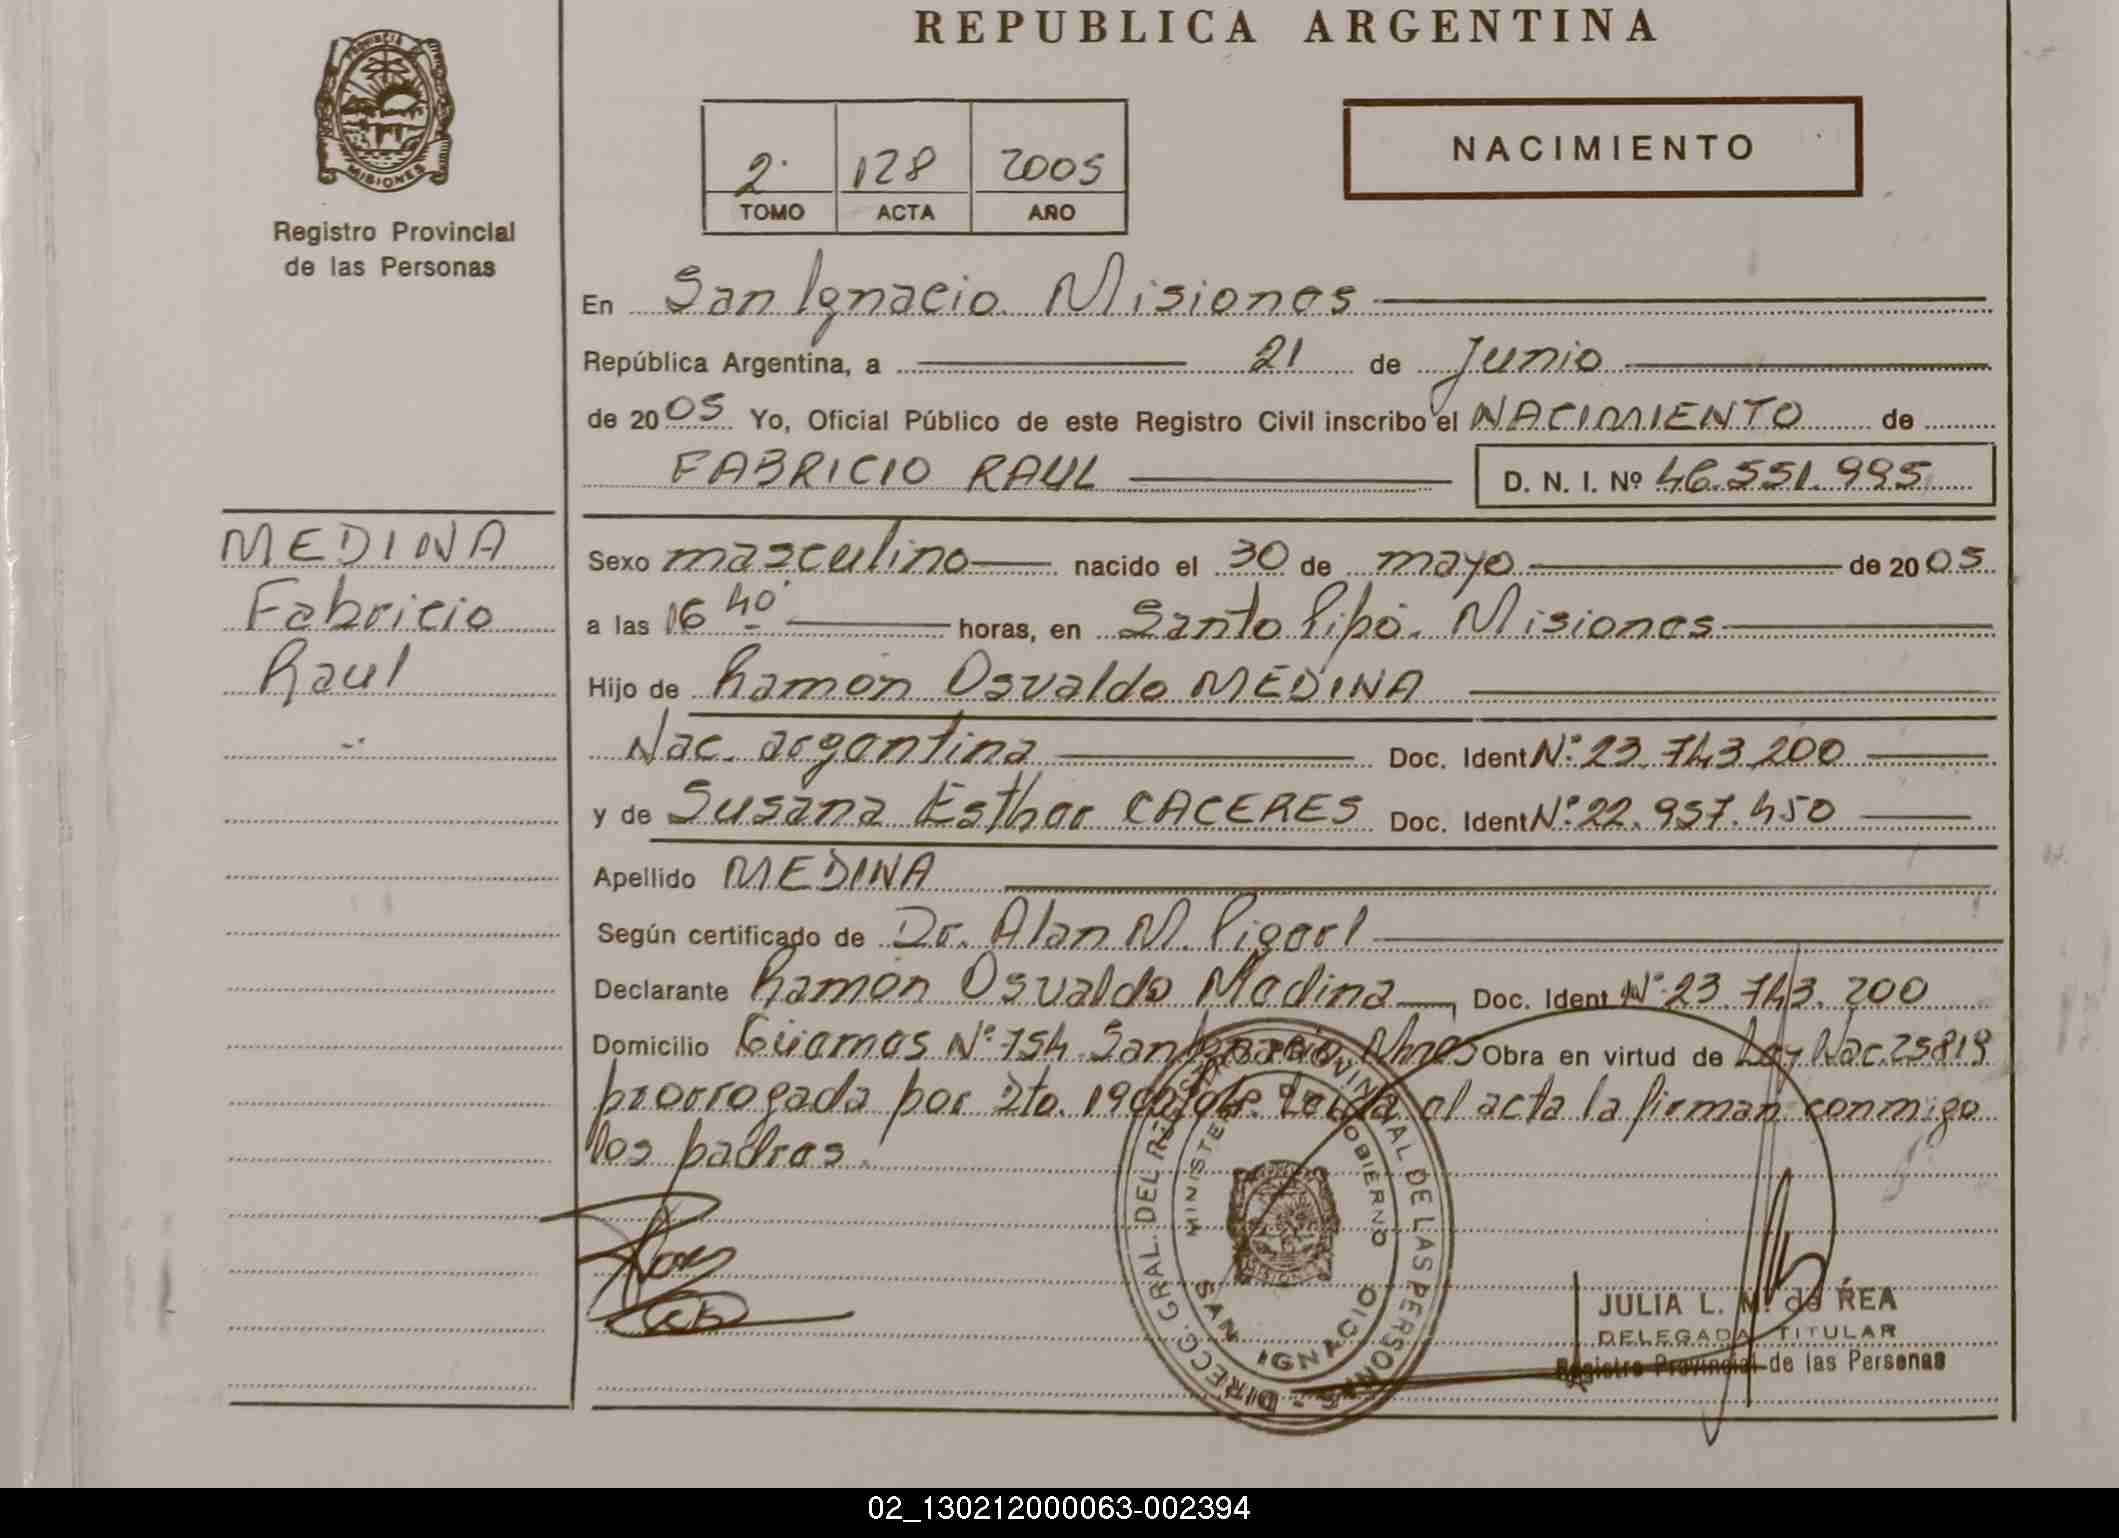 REPUBLICA ARGENTINA
PROVINCIA DE
MISIONES
Registro Provincial
de las Personas
2 128 2005
TOMO ACTA AÑO
NACIMIENTO
En San Ignacio Misiones
República Argentina, a 21 de Junio
de 2005 Yo, Oficial Público de este Registro Civil inscribo el NACIMIENTO de
FABRICIO RAUL D. N. I. Nº 46.551.995
MEDINA
Fabricio
Raul
Sexo masculino nacido el 30 de mayo de 2005
a las 16 40 horas, en Santo Pipó. Misiones
Hijo de Ramón Osvaldo MEDINA
Nac. argentina Doc. Ident Nº 23.743.200
y de Susana Esther CACERES Doc. Ident Nº 22.957.450
Apellido MEDINA
Según certificado de Dr. Alan M.
Declarante Ramón Osvaldo Medina Doc. Ident Nº 23.743.200
Domicilio Nº 754 San Ignacio Mnes Obra en virtud de Ley Nac. 25819
prorrogada por Dto. Leída el acta la firman conmigo
los padres.
DIRECC. GRAL. DEL REGISTRO PROVINCIAL DE LAS PERSONAS
MINISTERIO DE GOBIERNO
SAN IGNACIO
JULIA L. M. de REA
DELEGADA TITULAR
Registro Provincial de las Personas
02_130212000063-002394